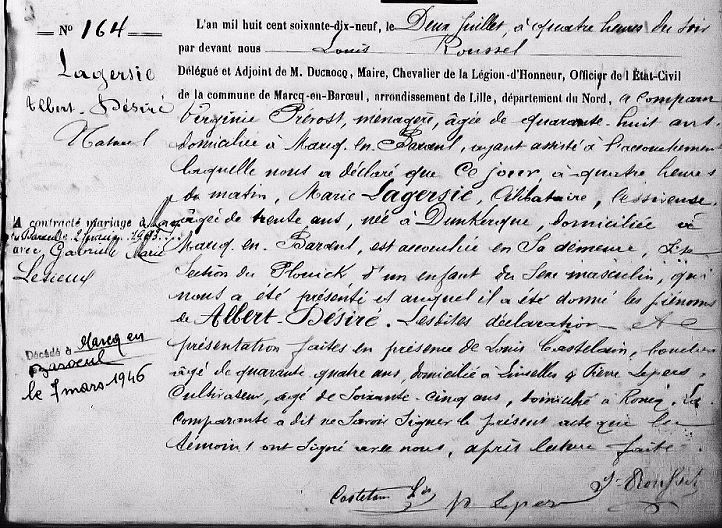 N° 164
Lagersie
Albert-Désiré
Naturel
A contracté mariage à
avec Gabrielle Marie
Lesieux
Décédé à Marcq en
Baroeul
le 7 mars 1946
L'an mil huit cent soixante-dix-neuf, le Deux Juillet, à quatre heures du soir
par devant nous Louis Roussel
Délégué et Adjoint de M. Ducrocq, Maire, Chevalier de la Légion-d'Honneur, Officier de l'État-Civil
de la commune de Marcq-en-Barœul, arrondissement de Lille, département du Nord, a comparu
Virginie Prévost, ménagère, âgée de quarante-huit ans,
domiciliée à Marcq-en-Baroeul, ayant assisté à l'accouchement
laquelle nous a déclaré que Ce jour, à quatre heures
du matin, Marie Lagersie, Célibataire, lessiveuse,
âgée de trente ans, née à Dunkerque, domiciliée à
Marcq-en-Baroeul, est accouchée en Sa demeure,
Section du Plouick d'un enfant du Sexe masculin, qui
nous a été présenté et auquel il a été donné les prénoms
de Albert-Désiré. Lesdites déclaration et
présentation faites en présence de Louis Castelain,
âgé de quarante quatre ans, domicilié à Linselles & Pierre Lepers,
Cultivateur, âgé de Soixante-cinq ans, domicilié à Roncq. La
Comparante a dit ne Savoir Signer le présent acte que les
témoins ont Signé avec nous, après lecture faite.
Castelain Ls P Lepers L. Roussel